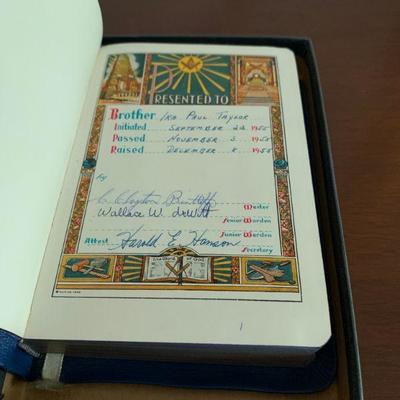 PRESENTED TO
Brother IRA PAUL TAYLOR
Initiated SEPTEMBER 22 1955
Passed NOVEMBER 3 1955
Raised DECEMBER 1955
by
Master
Wallace W. DeWitt
Senior Warden
Junior Warden
Attest Harold E. Hanson
Secretary
1